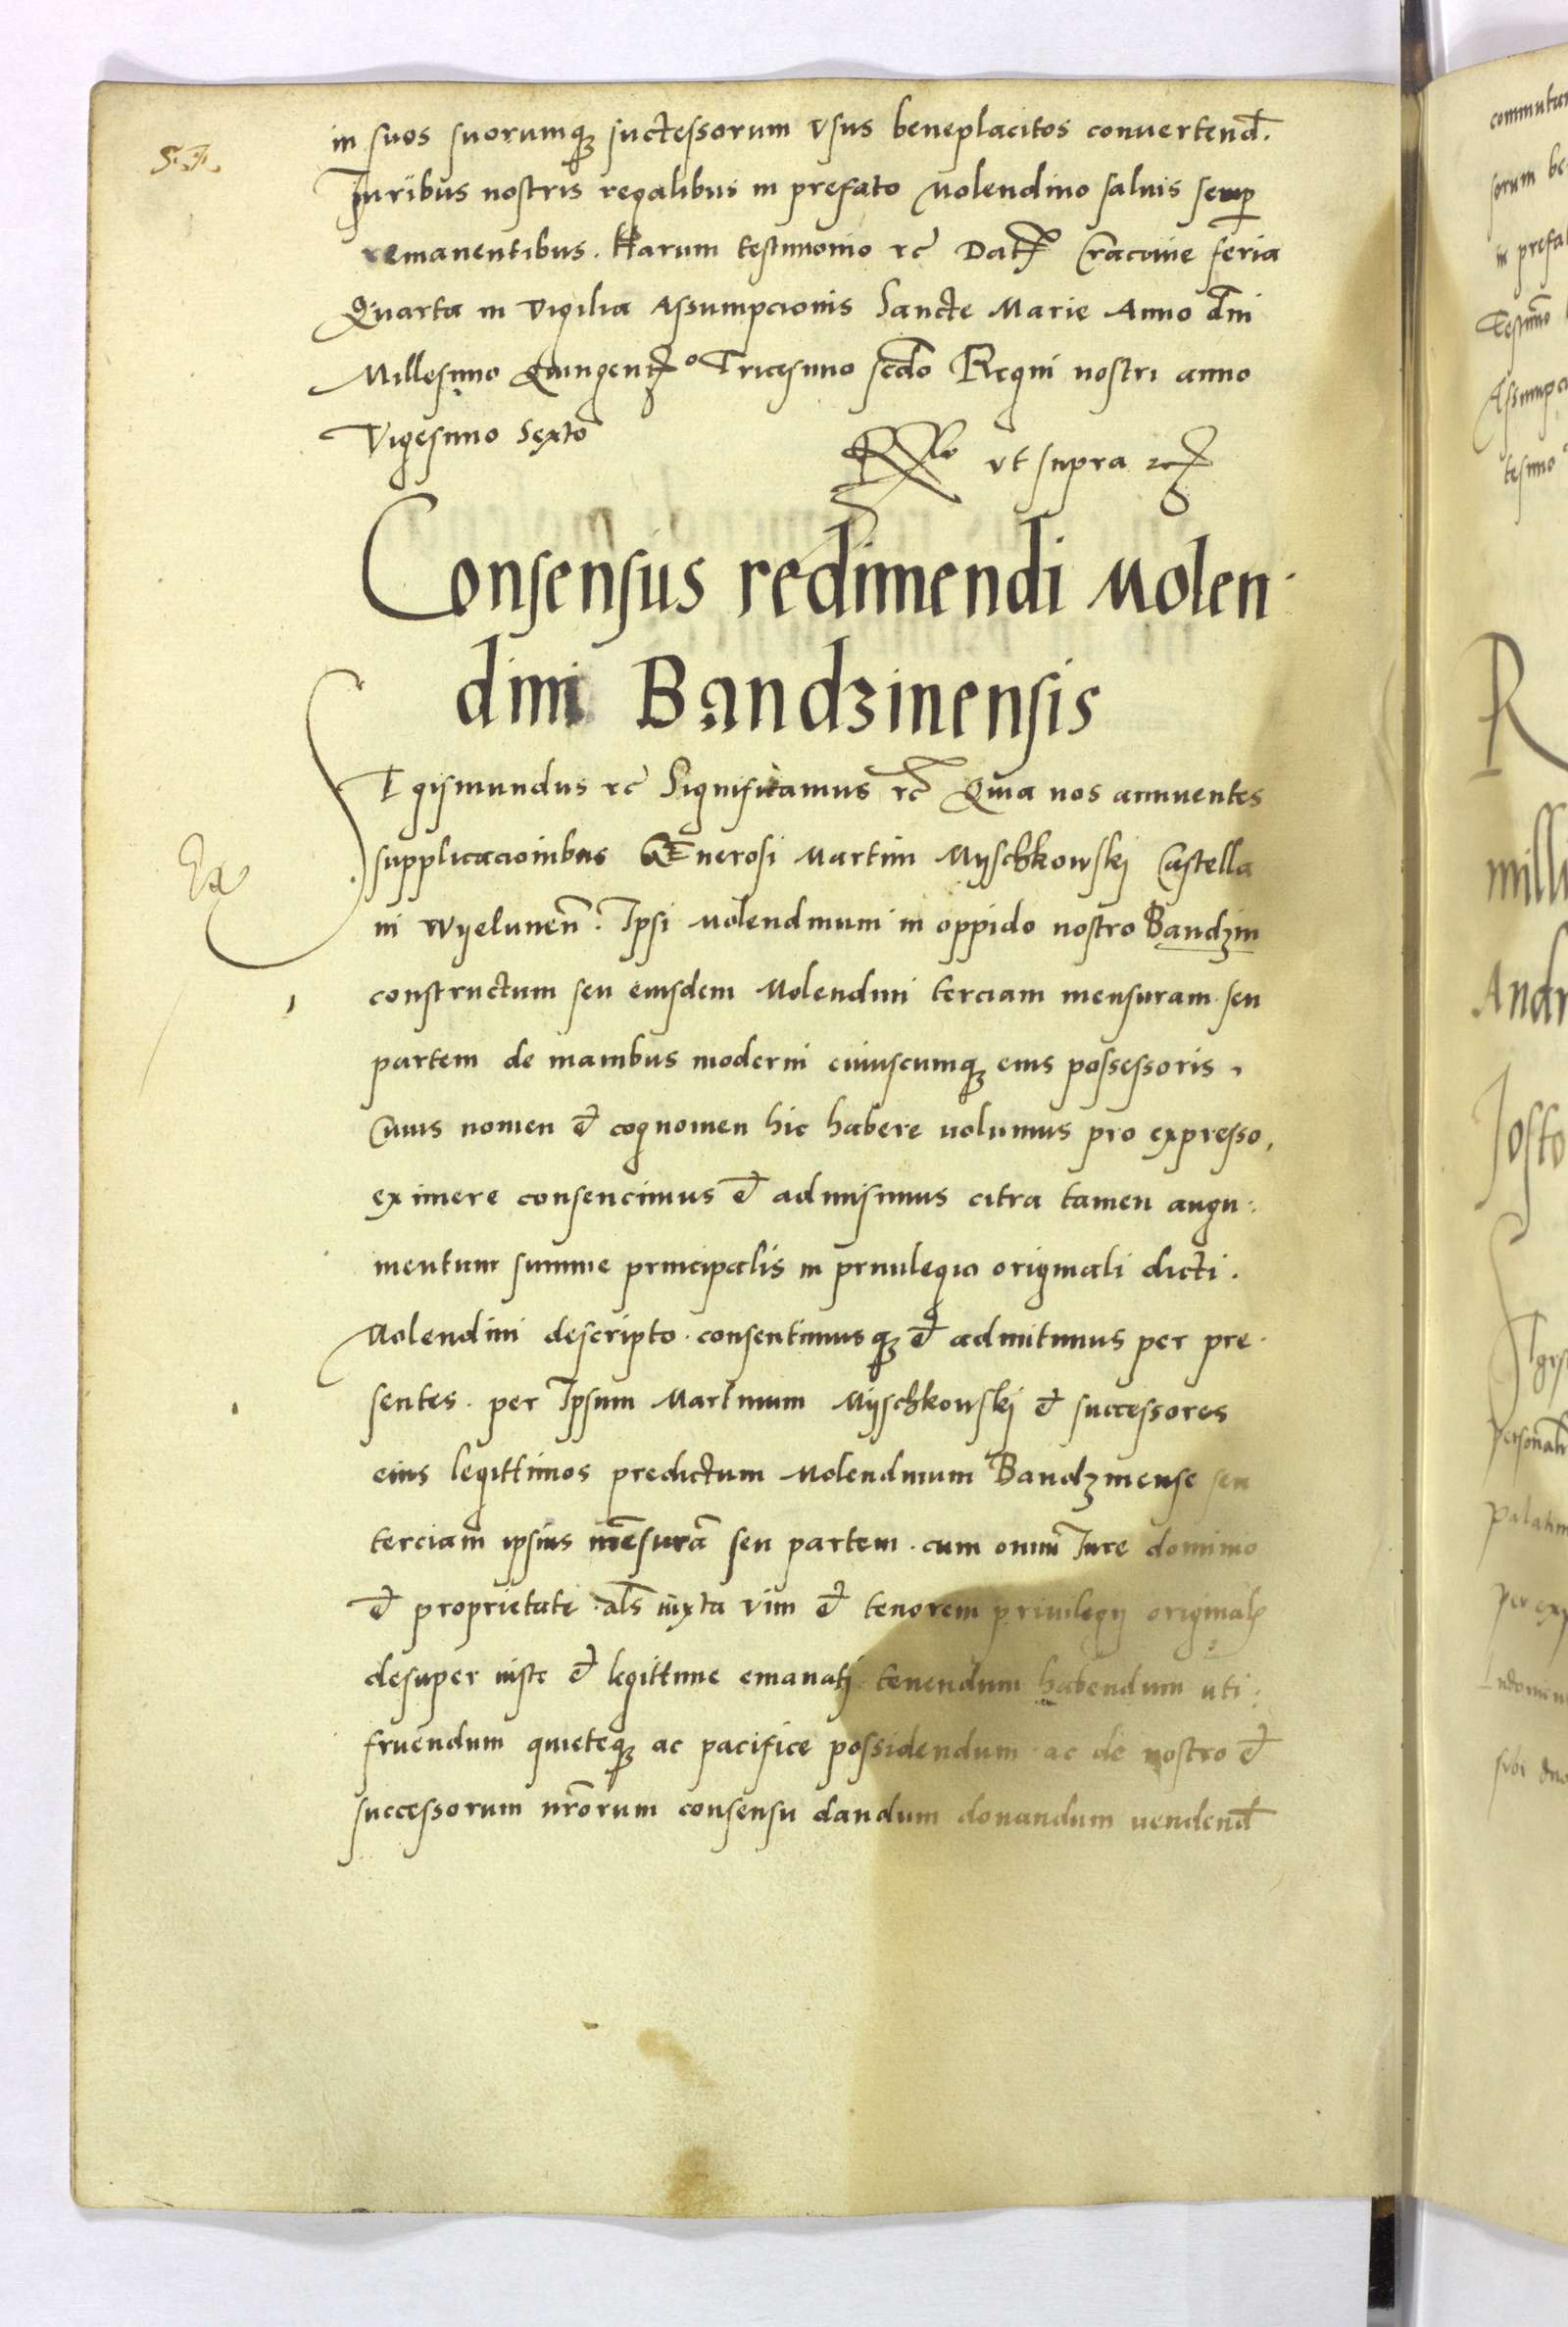 in suos suorumqz successorum vsus beneplacitos conuertend.
Juribus nostris regalibus in prefato Molendino saluis semp
remanentibus. Harum testimonio rc Dat Cracouie feria
Quarta in Vigilia Assumpcionis Sancte Marie Anno dni
Millesimo Quingento Tricesimo scdo Regni nostri anno
Vigesimo Sexto
Rlo vt supra rc
Consensus redimendi Molen
dini Bandzinensis
Sigismundus rc Significamus rc Quia nos annuentes
supplicacionibus Generosi Martini Myschkowskj Castella
ni Wyelunen. Ipsi Molendinum in oppido nostro Bandzin
constructum seu eiusdem Molendini terciam mensuram seu
partem de manibus moderni cuiuscumqz eius possessoris,
Cuius nomen et cognomen hic habere uolumus pro expresso,
eximere consencimus et admisimus citra tamen augu
mentum summe principalis in priuilegio originali dicti.
Molendini descripto. consentimusqz et admitimus per pre
sentes. per Ipsum Martinum Myschkowskj et successores
eius legittimos predictum Molendinum Bandzinense seu
terciam ipsius mensura seu partem. cum omni Jure dominio
et proprietate als iuxta vim et tenorem priuilegij original
desuper iuste et legittime emanatj tenendum habendum uti
fruendum quieteqz ac pacifice possidendum ac de nostro et
successorum nrorum consensu dandum donandum uendend